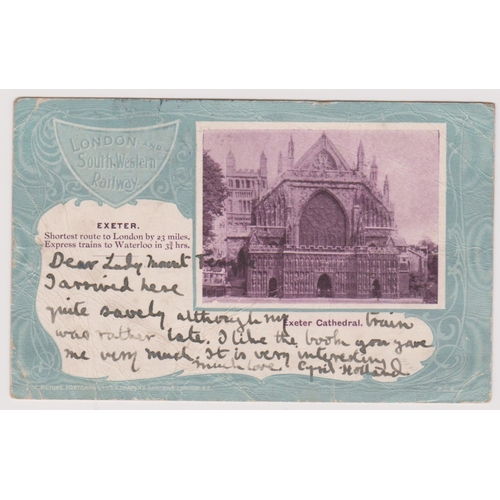 LONDON AND
South Western
Railway
EXETER.
Shortest route to London by 23 miles.
Express trains to Waterloo in 3¼ hrs.
Dear Lady Mount
I arrived here
quite savely although my train
Exeter Cathedral.
was rather late. I like the book you gave
me very much. It is very interesting
much love Cyril Holland